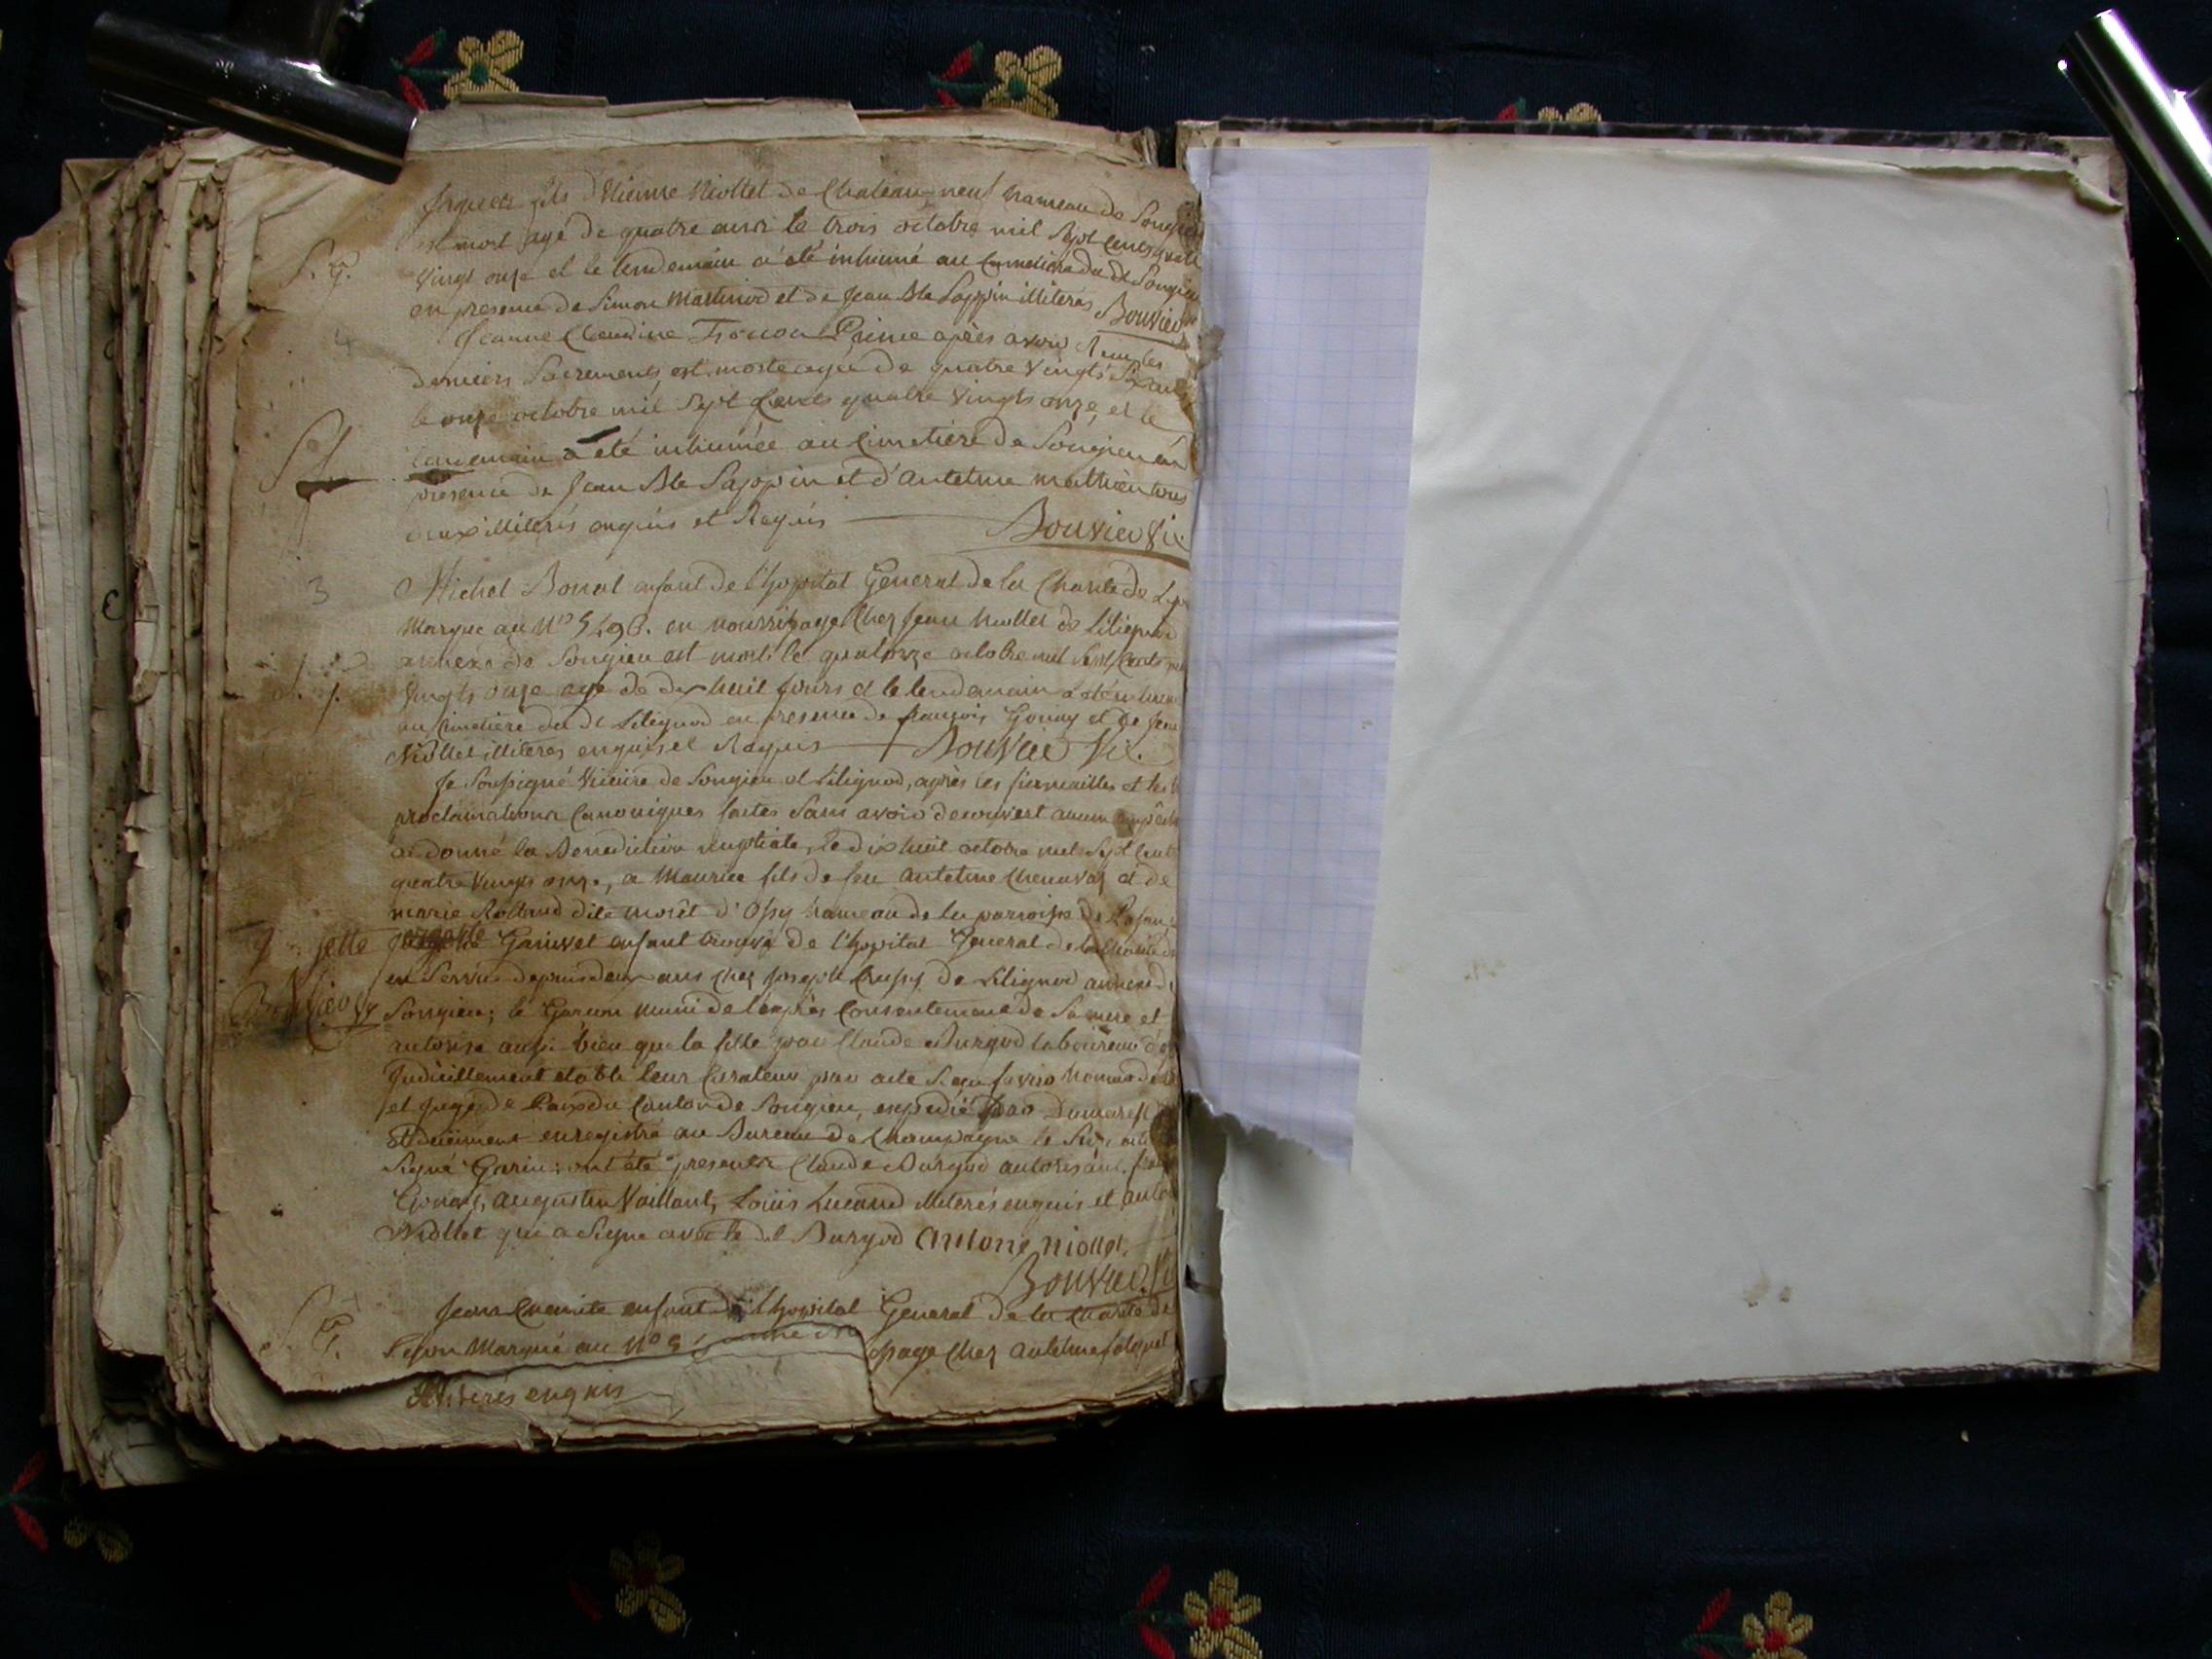 fils d'Etienne Niollet de Chateau-neuf hameau de Songieu
est mort agé de quatre ans le trois octobre mil sept cents quatre
vingt onze et le lendemain a été inhumé au cimetiere du dt Songieu
en presence de Simon Martinod et de Jean Bte Sappin illiterés Bouvier
Jeanne Claudine après avoir Reçu les
derniers Sacrements, est morte agée de quatre vingts
le onze octobre mil sept cents quatre vingts onze, et le
lendemain a été inhumée au Cimetière de Songieu en
presence de Jean Bte Sappin et d'antelme mathieu tous
deux illiterés enquis et Requis Bouvier Vic.
3
Michel Bonal enfant de l'hopital General de la Charité de Ly
Marqué au No 5498. en nourrissage Chez Jean Niollet de Lilignod
annexe de Songieu est mort le quatorze octobre mil sept cents
Vingts onze agé de dix huit jours et le lendemain a été inhumé
au Cimetière du dt Lilignod en presence de françois Gonay et de Jean
Niollet illiteres enquis et Requis Bouvier Vic.
Je Soussigné Vicaire de Songieu et Lilignod, après les fiermailles et les
proclamations Canoniques faites Sans avoir decouvert aucun empêch
ai donné la Benediction nuptiale, le dix huit octobre mil sept cent
quatre Vingts onze, a Maurice fils de feu antelme Chenavaz et de
marie Rolland dite morêt d'Ossy hameau de la parroisse de
Garivet enfant trouvé de l'hopital General de la Charité de
en Service depuis deux ans chez joseph Crussy de Lilignod annexe de
Bouvier Vic
Songieu; le Garçon muni de l'exprès Consentement de Sa mere et
autorisé aussi bien que la fille par Claude Burgod laboureur d'
Judiciellement etabli leur Curateur par acte
et Juge de Paix du Canton de Songieu, expedié par Dumarest
et duëment enregistré au Bureau de Champagne le
Signé Garin: ont été presents Claude Burgod autorisant,
Gonay, augustin Vaillant, Loüis Lucand illiterés enquis et anto
Niollet qui a Signé avec le dt Burgod antone niollet.
Bouvier Vi
Jean enfant de l'hopital General de la Charité de
Lyon Marqué au No 5
Chez antelme
illiterés enquis